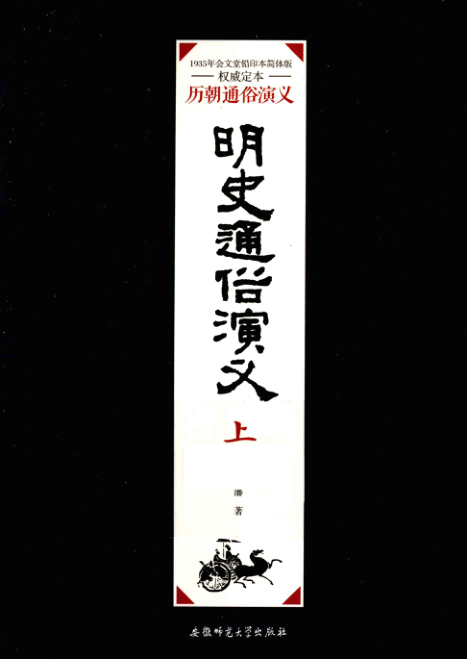 1935年会文堂铅印本简体版
权威定本
历朝通俗演义
明史通俗演义
上
著
安徽师范大学出版社